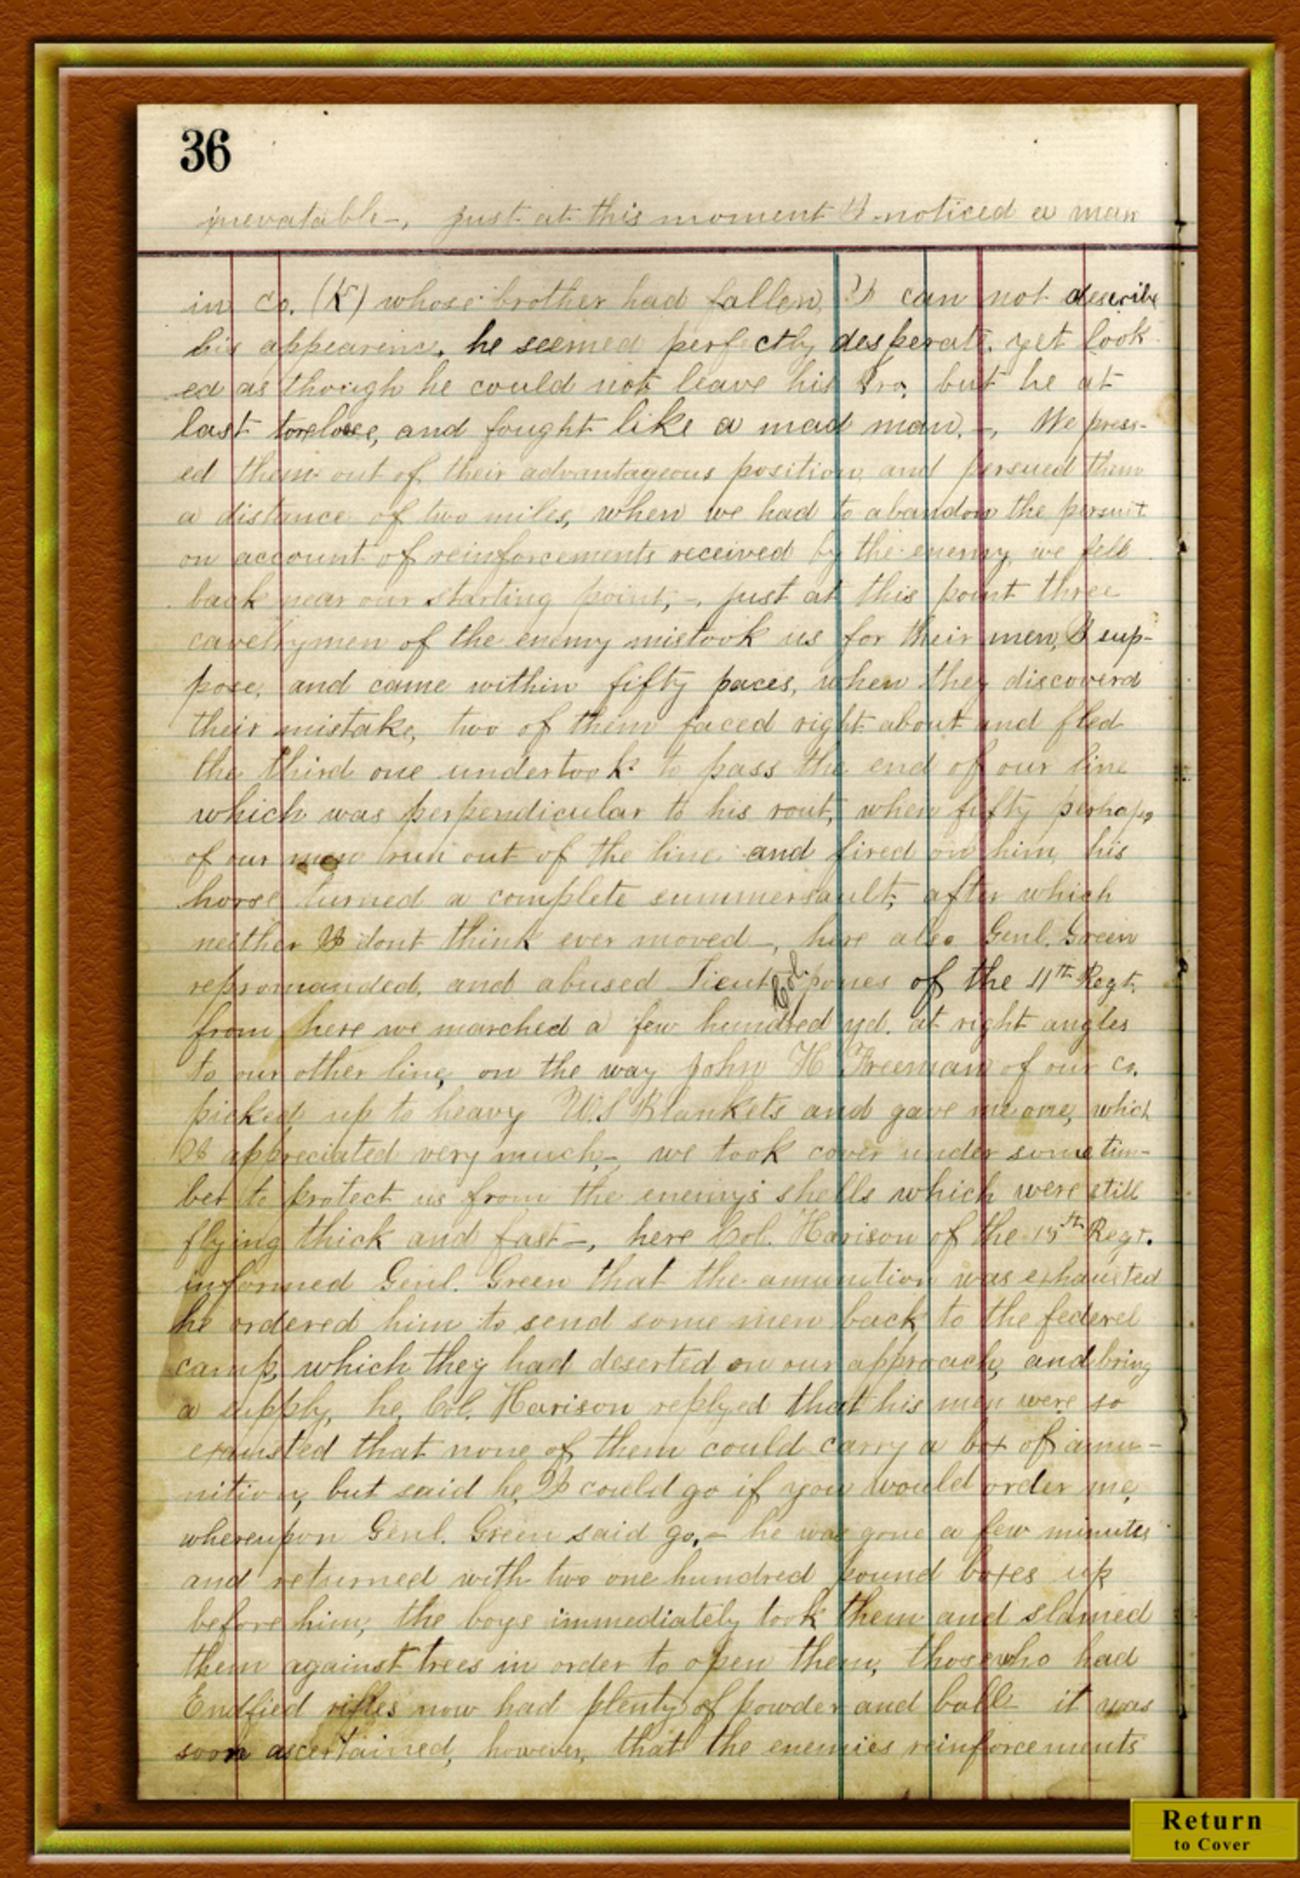 36
inevatable-, just at this moment I noticed a man
in Co. (K) whose brother had fallen, I can not describe
his appearinc. he seemed perfectly desperate, yet look-
ed as though he could not leave his Bro, but he at
last and fought like a mad man. -, We press-
ed them out of their advantageous position, and persued them
a distance of two miles, when we had to abandon the persuit
on account of reinforcements received by the enemy, we fell
back near our starting point, -, just at this point three
cavelrymen of the enemy mistook us for their men, I sup-
pose, and came within fifty paces, when they discoverd
their mistake, two of them faced right about and fled
the third one undertook to pass the end of our line
which was perpendicular to his rout, when fifty perhaps
of our men run out of the line and fired on him, his
horse turned a complete summersault, after which
neither I dont think ever moved -, here also Genl. Green
repromanded, and abused Lieut Col. Jones of the 11th Regt.
from here we marched a few hundred yd. at right angles
to our other line, on the way John H Freeman of our co.
picked up to heavy U.S Blankets and gave me one, which
I appreciated very much, -, we took cover under some tim-
ber to protect us from the enemy's shells which were still
flying thick and fast -, here Col. Harison of the 15th Regt.
informed Genl. Green that the amunition was exhausted
he ordered him to send some men back to the federel
camp, which they had deserted on our approach, and bring
a supply, he, Col. Harison replyed that his men were so
exausted that none of them could carry a box of amu-
nition, but said he, I could go if you would order me,
whereupon Genl. Green said go, - he was gone a few minutes
and returned with two one hundred pound boxes up
before him, the boys immediately took them and slamed
them against trees in order to open them, those who had
Endfied rifles now had plenty of powder and ball it was
soon ascertained, however, that the enemies reinforcements
Return
to Cover